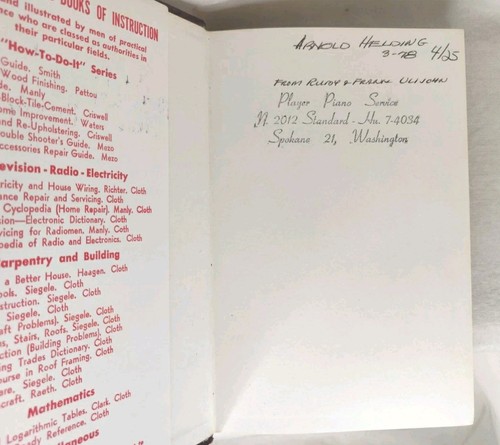 BOOKS OF INSTRUCTION
and illustrated by men of practical
who are classed as authorities in
their particular fields.
"How-To-Do-It" Series
Guide. Smith
Wood Finishing. Pattou
Manly
Block-Tile-Cement. Criswell
Improvement. Waters
and Re-Upholstering. Criswell
Trouble Shooter's Guide. Mezo
Accessories Repair Guide. Mezo
Television - Radio - Electricity
and House Wiring. Richter. Cloth
Repair and Servicing. Cloth
Cyclopedia (Home Repair). Manly. Cloth
Electronic Dictionary. Cloth
Servicing for Radiomen. Manly. Coth
of Radio and Electronics. Cloth
Carpentry and Building
a Better House. Haagen. Cloth
Tools. Siegele. Cloth
Construction. Siegele. Cloth
Siegele. Cloth
Craft Problems). Siegele. Cloth
Stairs, Roofs. Siegele. Cloth
(Building Problems). Cloth
Trades Dictionary. Cloth
Course in Roof Framing. Cloth
Siegele. Cloth
Raeth. Cloth
Mathematics
Logarithmic Tables. Clark. Cloth
Ready Reference. Cloth
Miscellaneous
ARNOLD HELDING
3-78 4/25
FROM RUDY & FRANK ULJOHN
Player Piano Service
N. 2012 Standard - Hu. 7-4034
Spokane 21, Washington